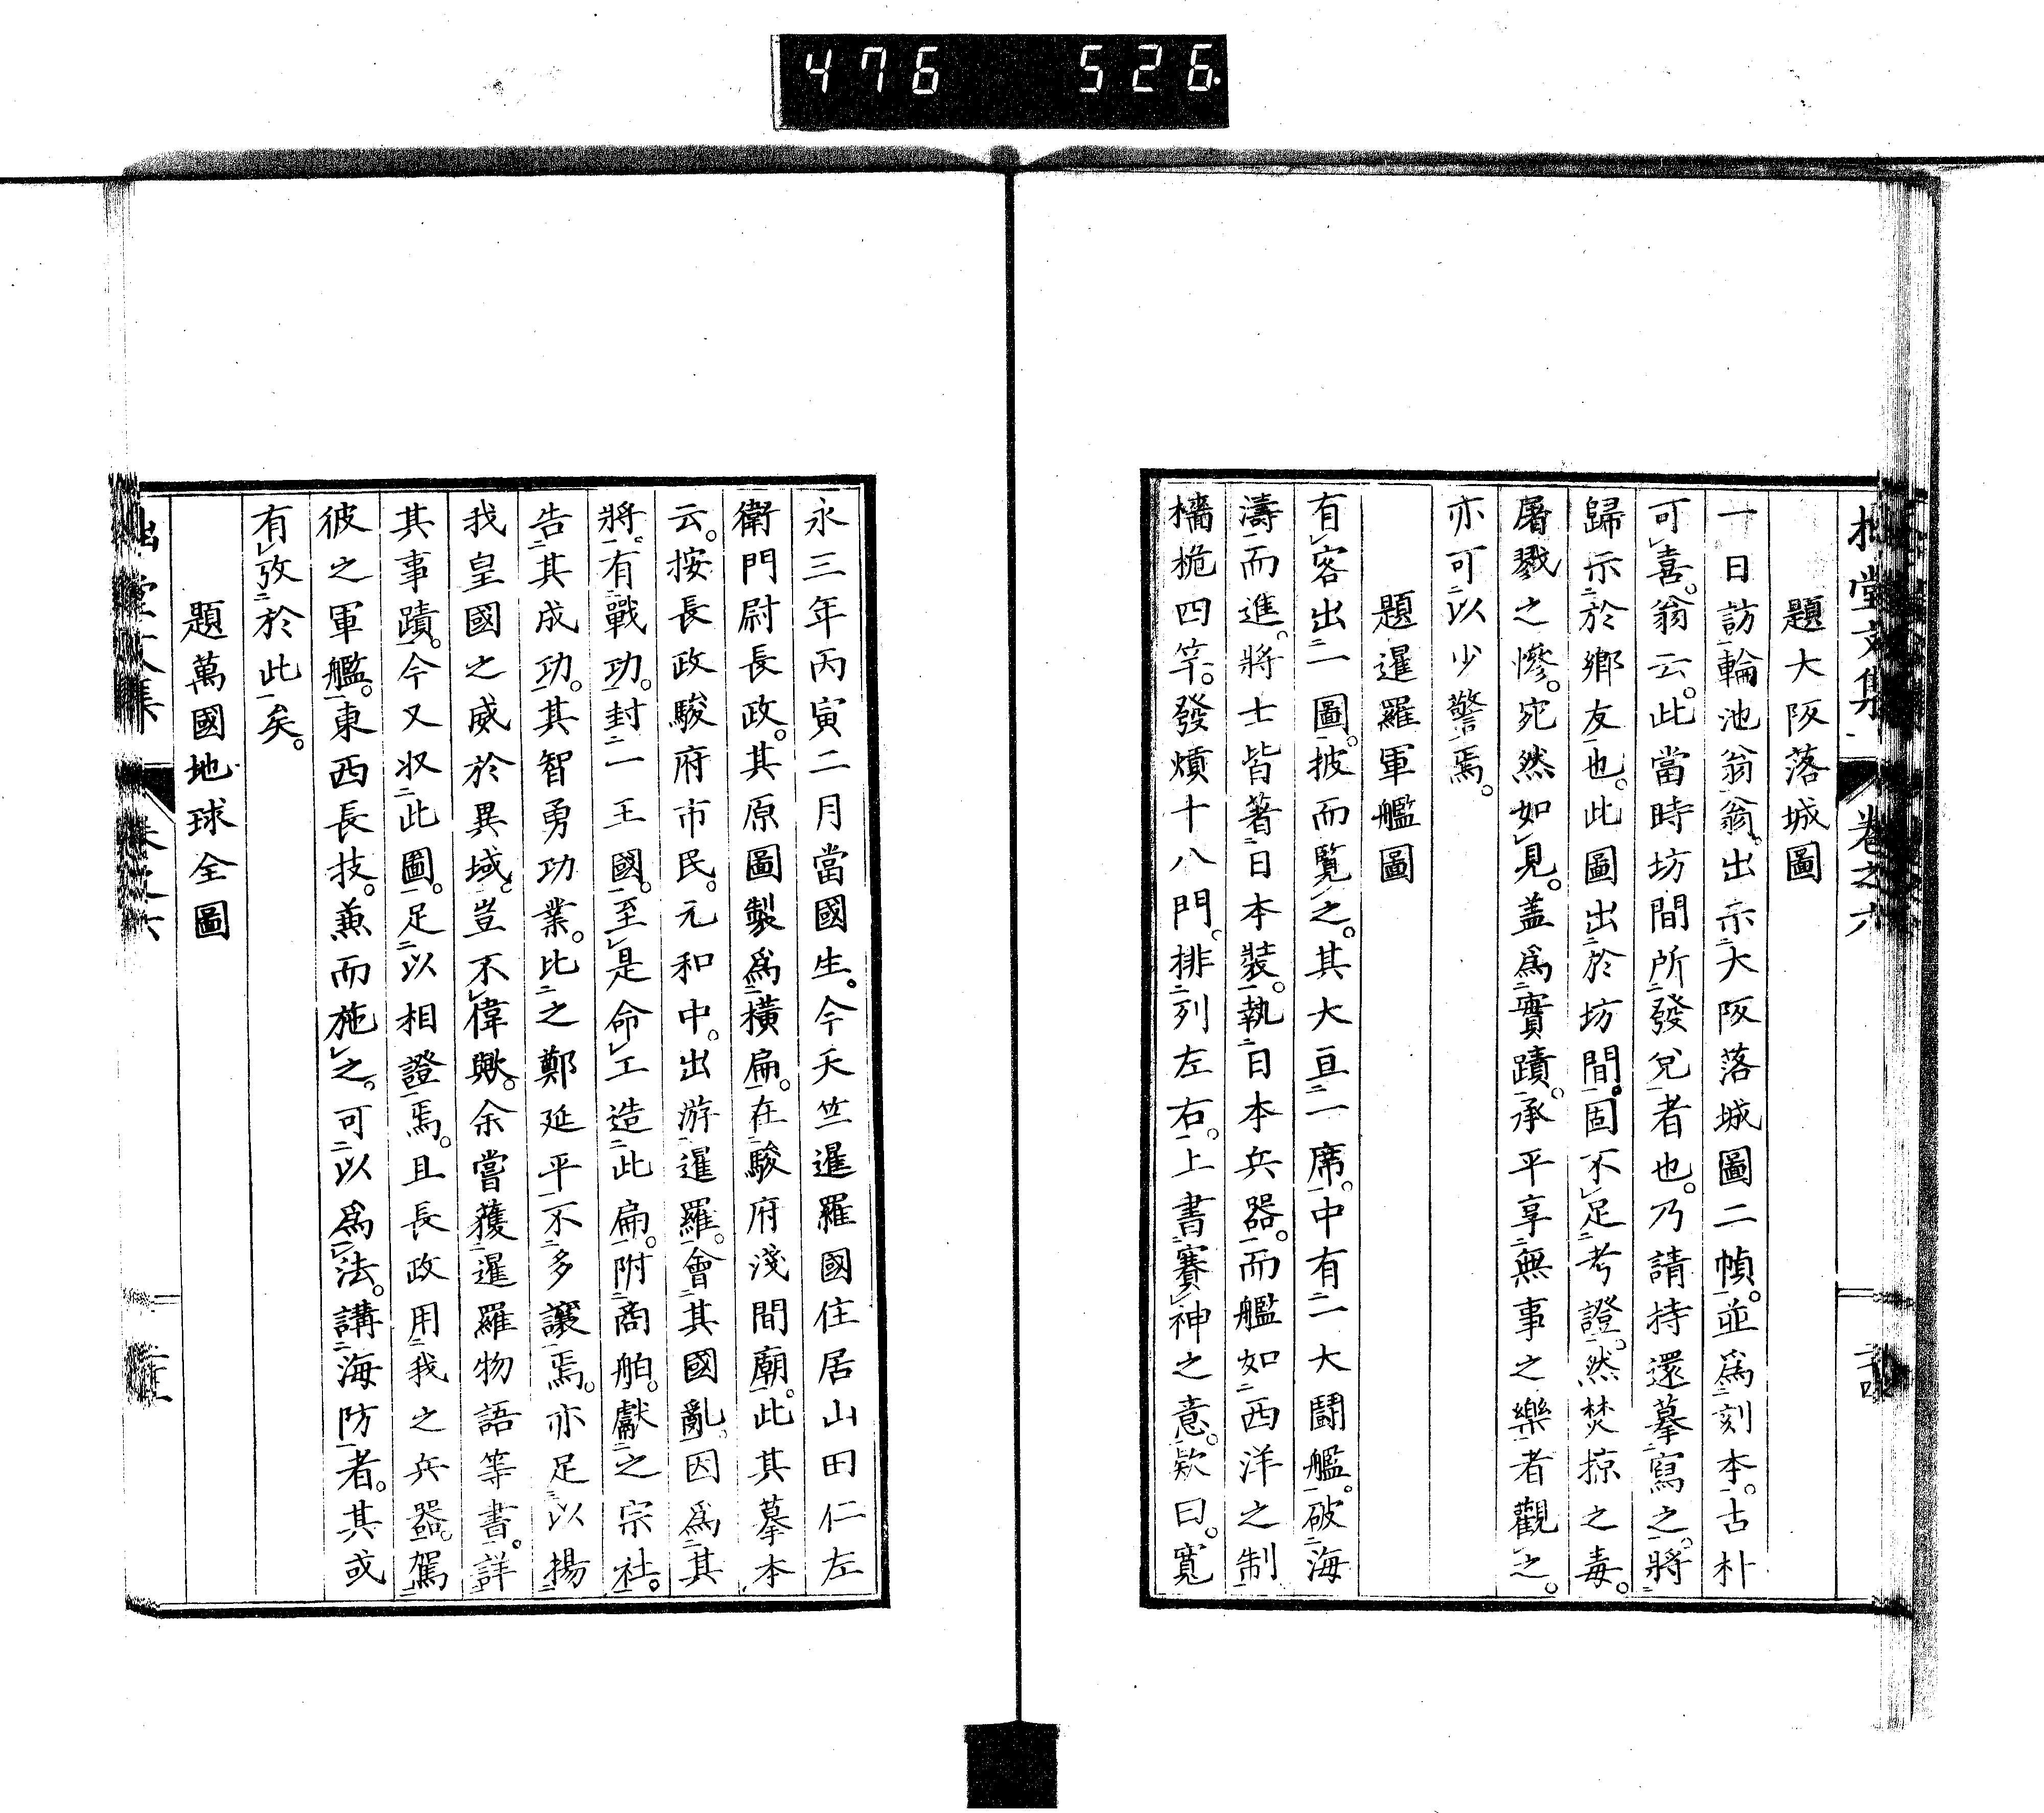 476 526.
拙堂文集 卷之六
題大阪落城圖
一日訪輪池翁翁。出示大阪落城圖二幀。並爲刻本。古朴
可喜。翁云。此當時坊間所發兌者也。乃請持還摹寫之。將
歸示於鄉友也。此圖出於坊間。固不足考證。然焚掠之毒。
屠戮之慘。宛然如見。蓋爲實蹟。承平享無事之樂者觀之。
亦可以少警焉。
題暹羅軍艦圖
有客出一圖。披而覽之。其大亘一席。中有一大鬪艦。破海
濤而進。將士皆著日本裝。執日本兵器。而艦如西洋之制
檣桅四竿。發熕十八門。排列左右。上書賽神之意。欵曰。寬
永三年丙寅二月當國生。今天竺暹羅國住居山田仁左
衛門尉長政。其原圖製爲橫扁。在駿府淺間廟。此其摹本
云。按長政駿府市民。元和中。出游暹羅。會其國亂。因爲其
將。有戰功。封一王國。至是命工造此扁。附商舶。獻之宗社。
告其成功。其智勇功業。比之鄭延平不多讓焉。亦足以揚
我皇國之威於異域。豈不偉歟。余嘗獲暹羅物語等書。詳
其事蹟。今又収此圖。足以相證焉。且長政用我之兵器。駕
彼之軍艦。東西長技。兼而施之。可以爲法。講海防者。其或
有攷於此矣。
題萬國地球全圖